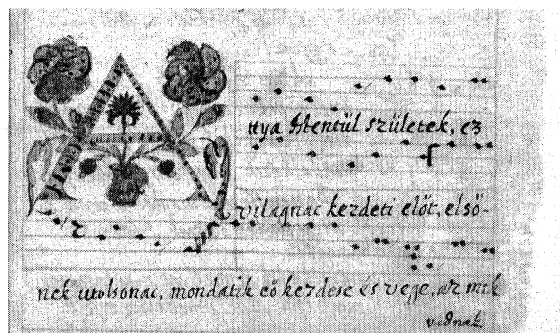 ttya Istentül születek, ez
vilagnac kezdeti előt, elsö-
nek utolsonac, mondatik eö kezdese és vege, az mik
vadnak